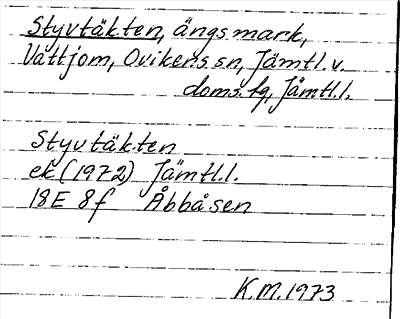 Styvtäkten, ängsmark,
Vättjom, Ovikens sn, Jämtl. v.
doms. fg, Jämtl.l.
Styvtäkten
ek (1972) Jämtl.l.
18E 8f Åbbåsen
K.M. 1973